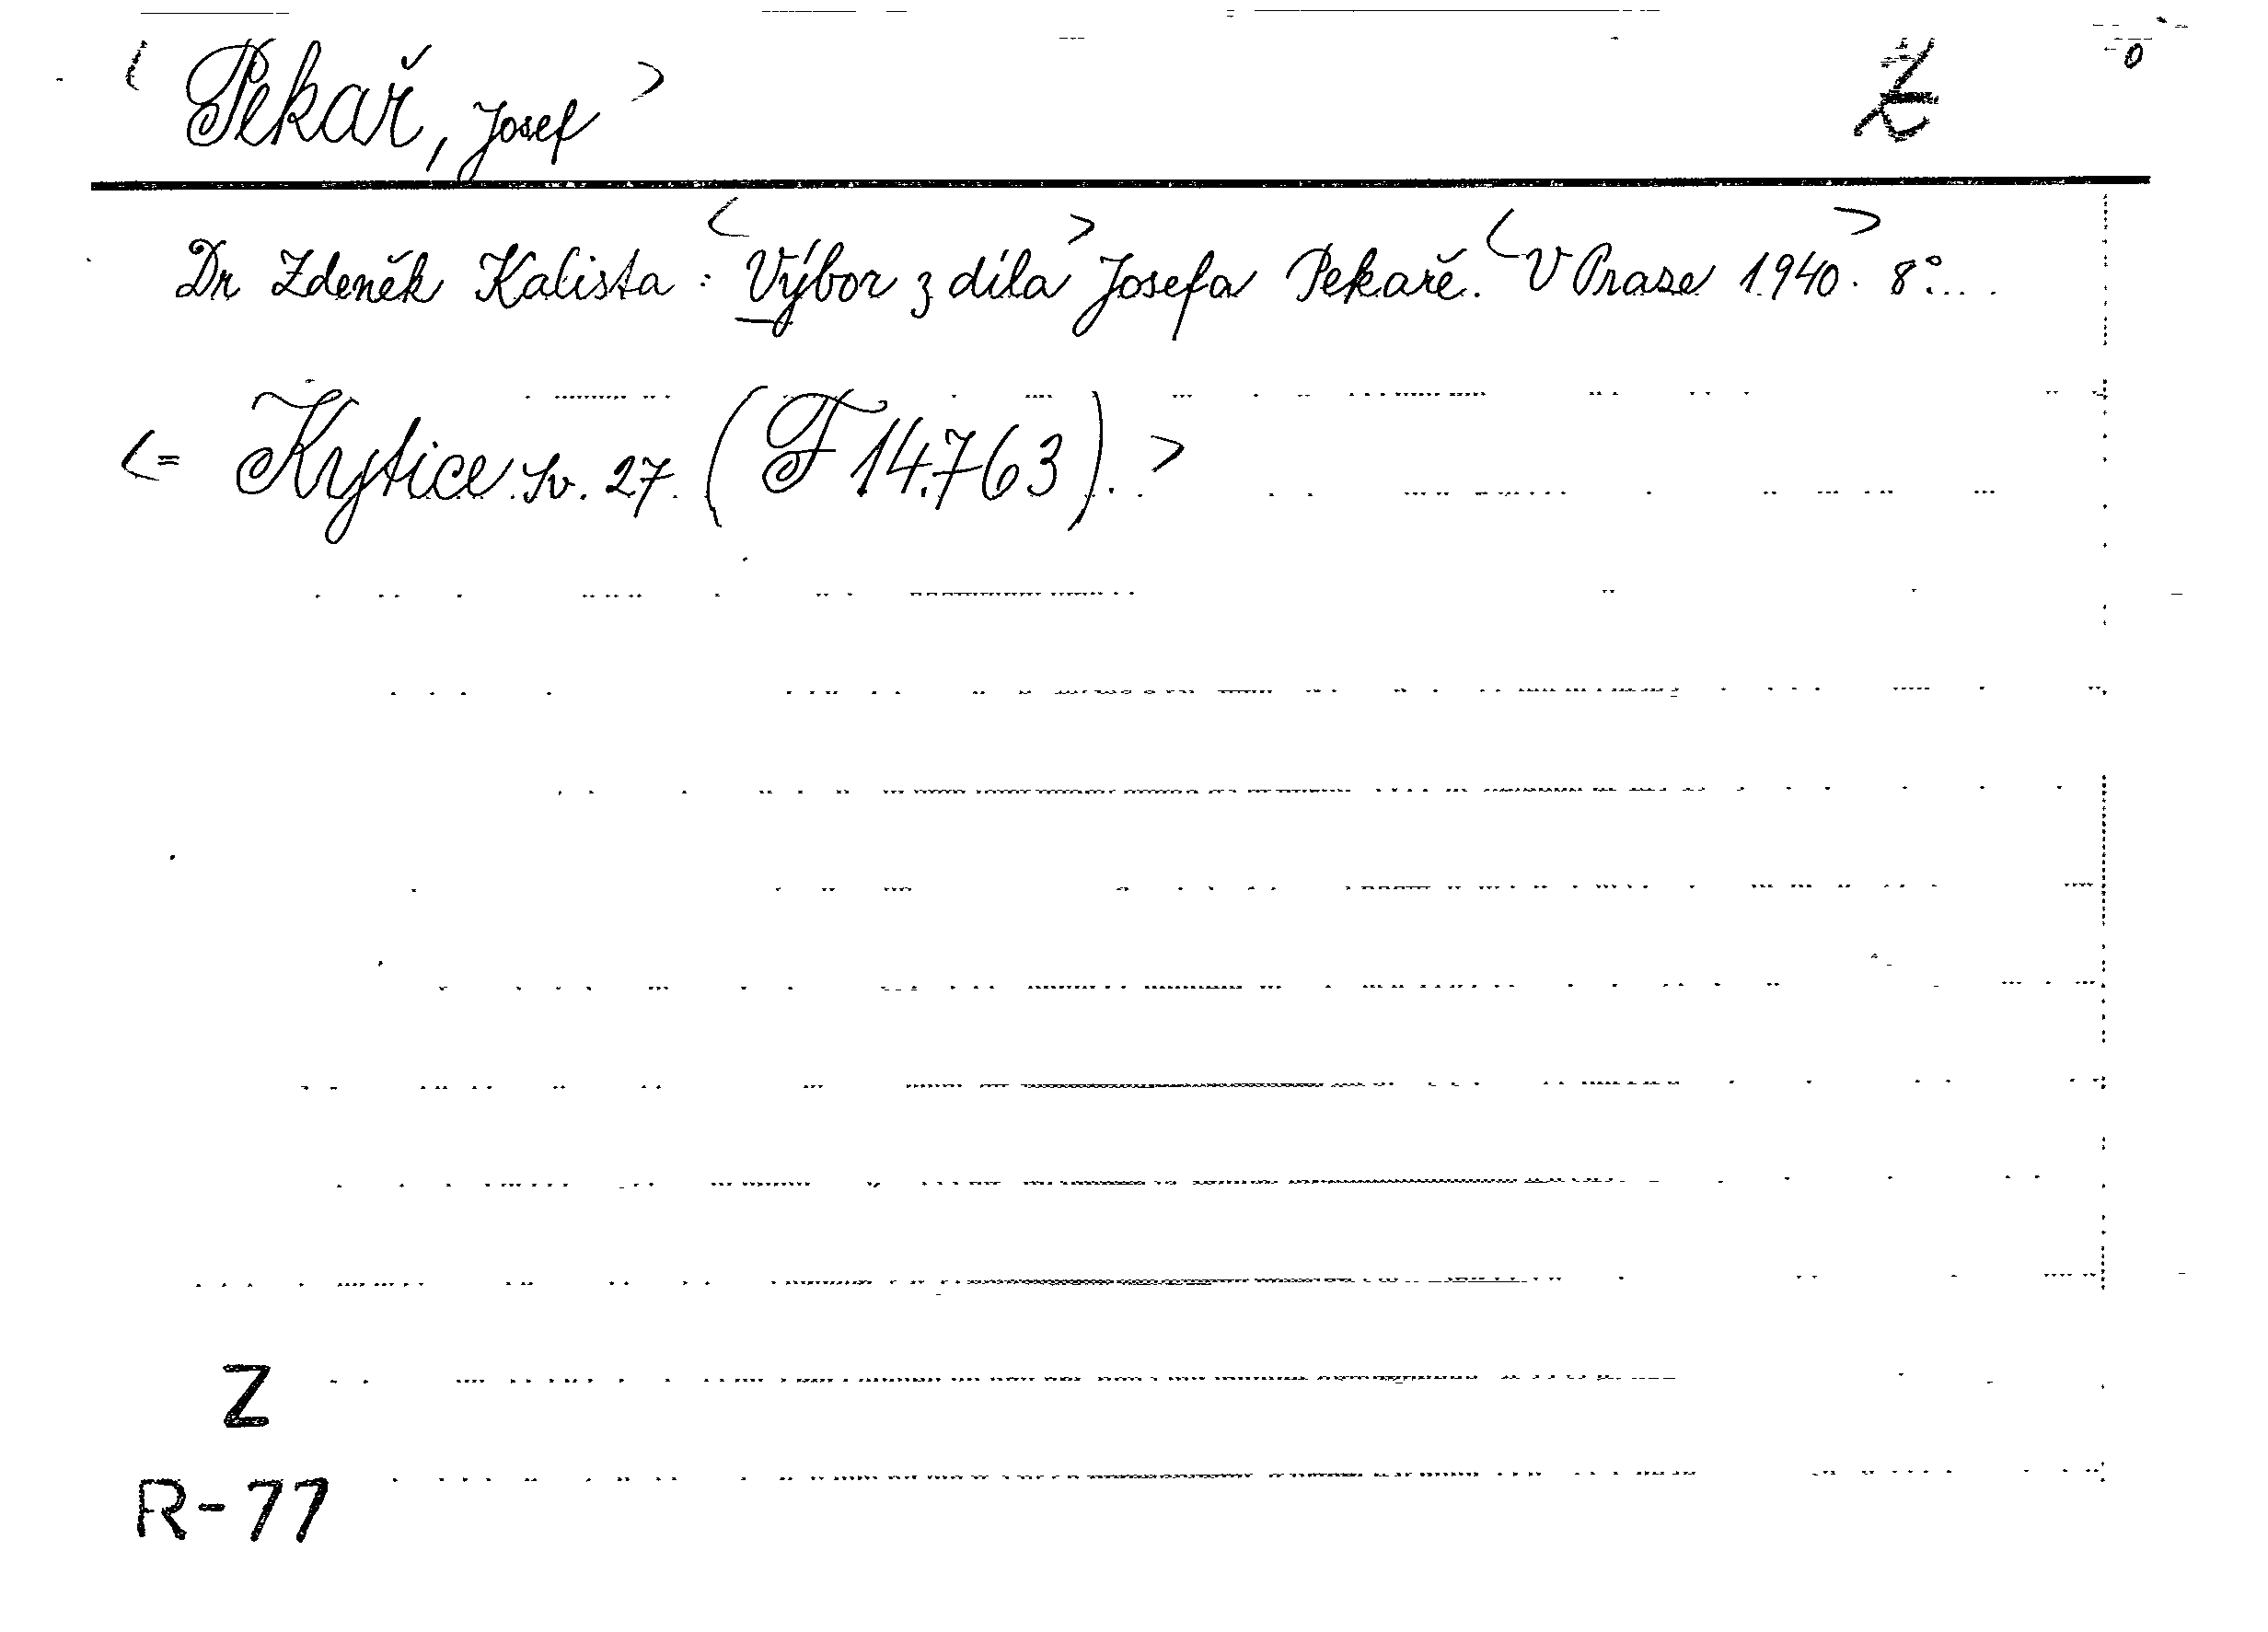 < Pekař, Josef > Z 0
Dr Zdeněk Kalista: <Výbor z díla> Josefa Pekaře. <V Praze 1940.> 8°...
<= Kytice. Sv. 27. (F 14.763).>
Z
R-77